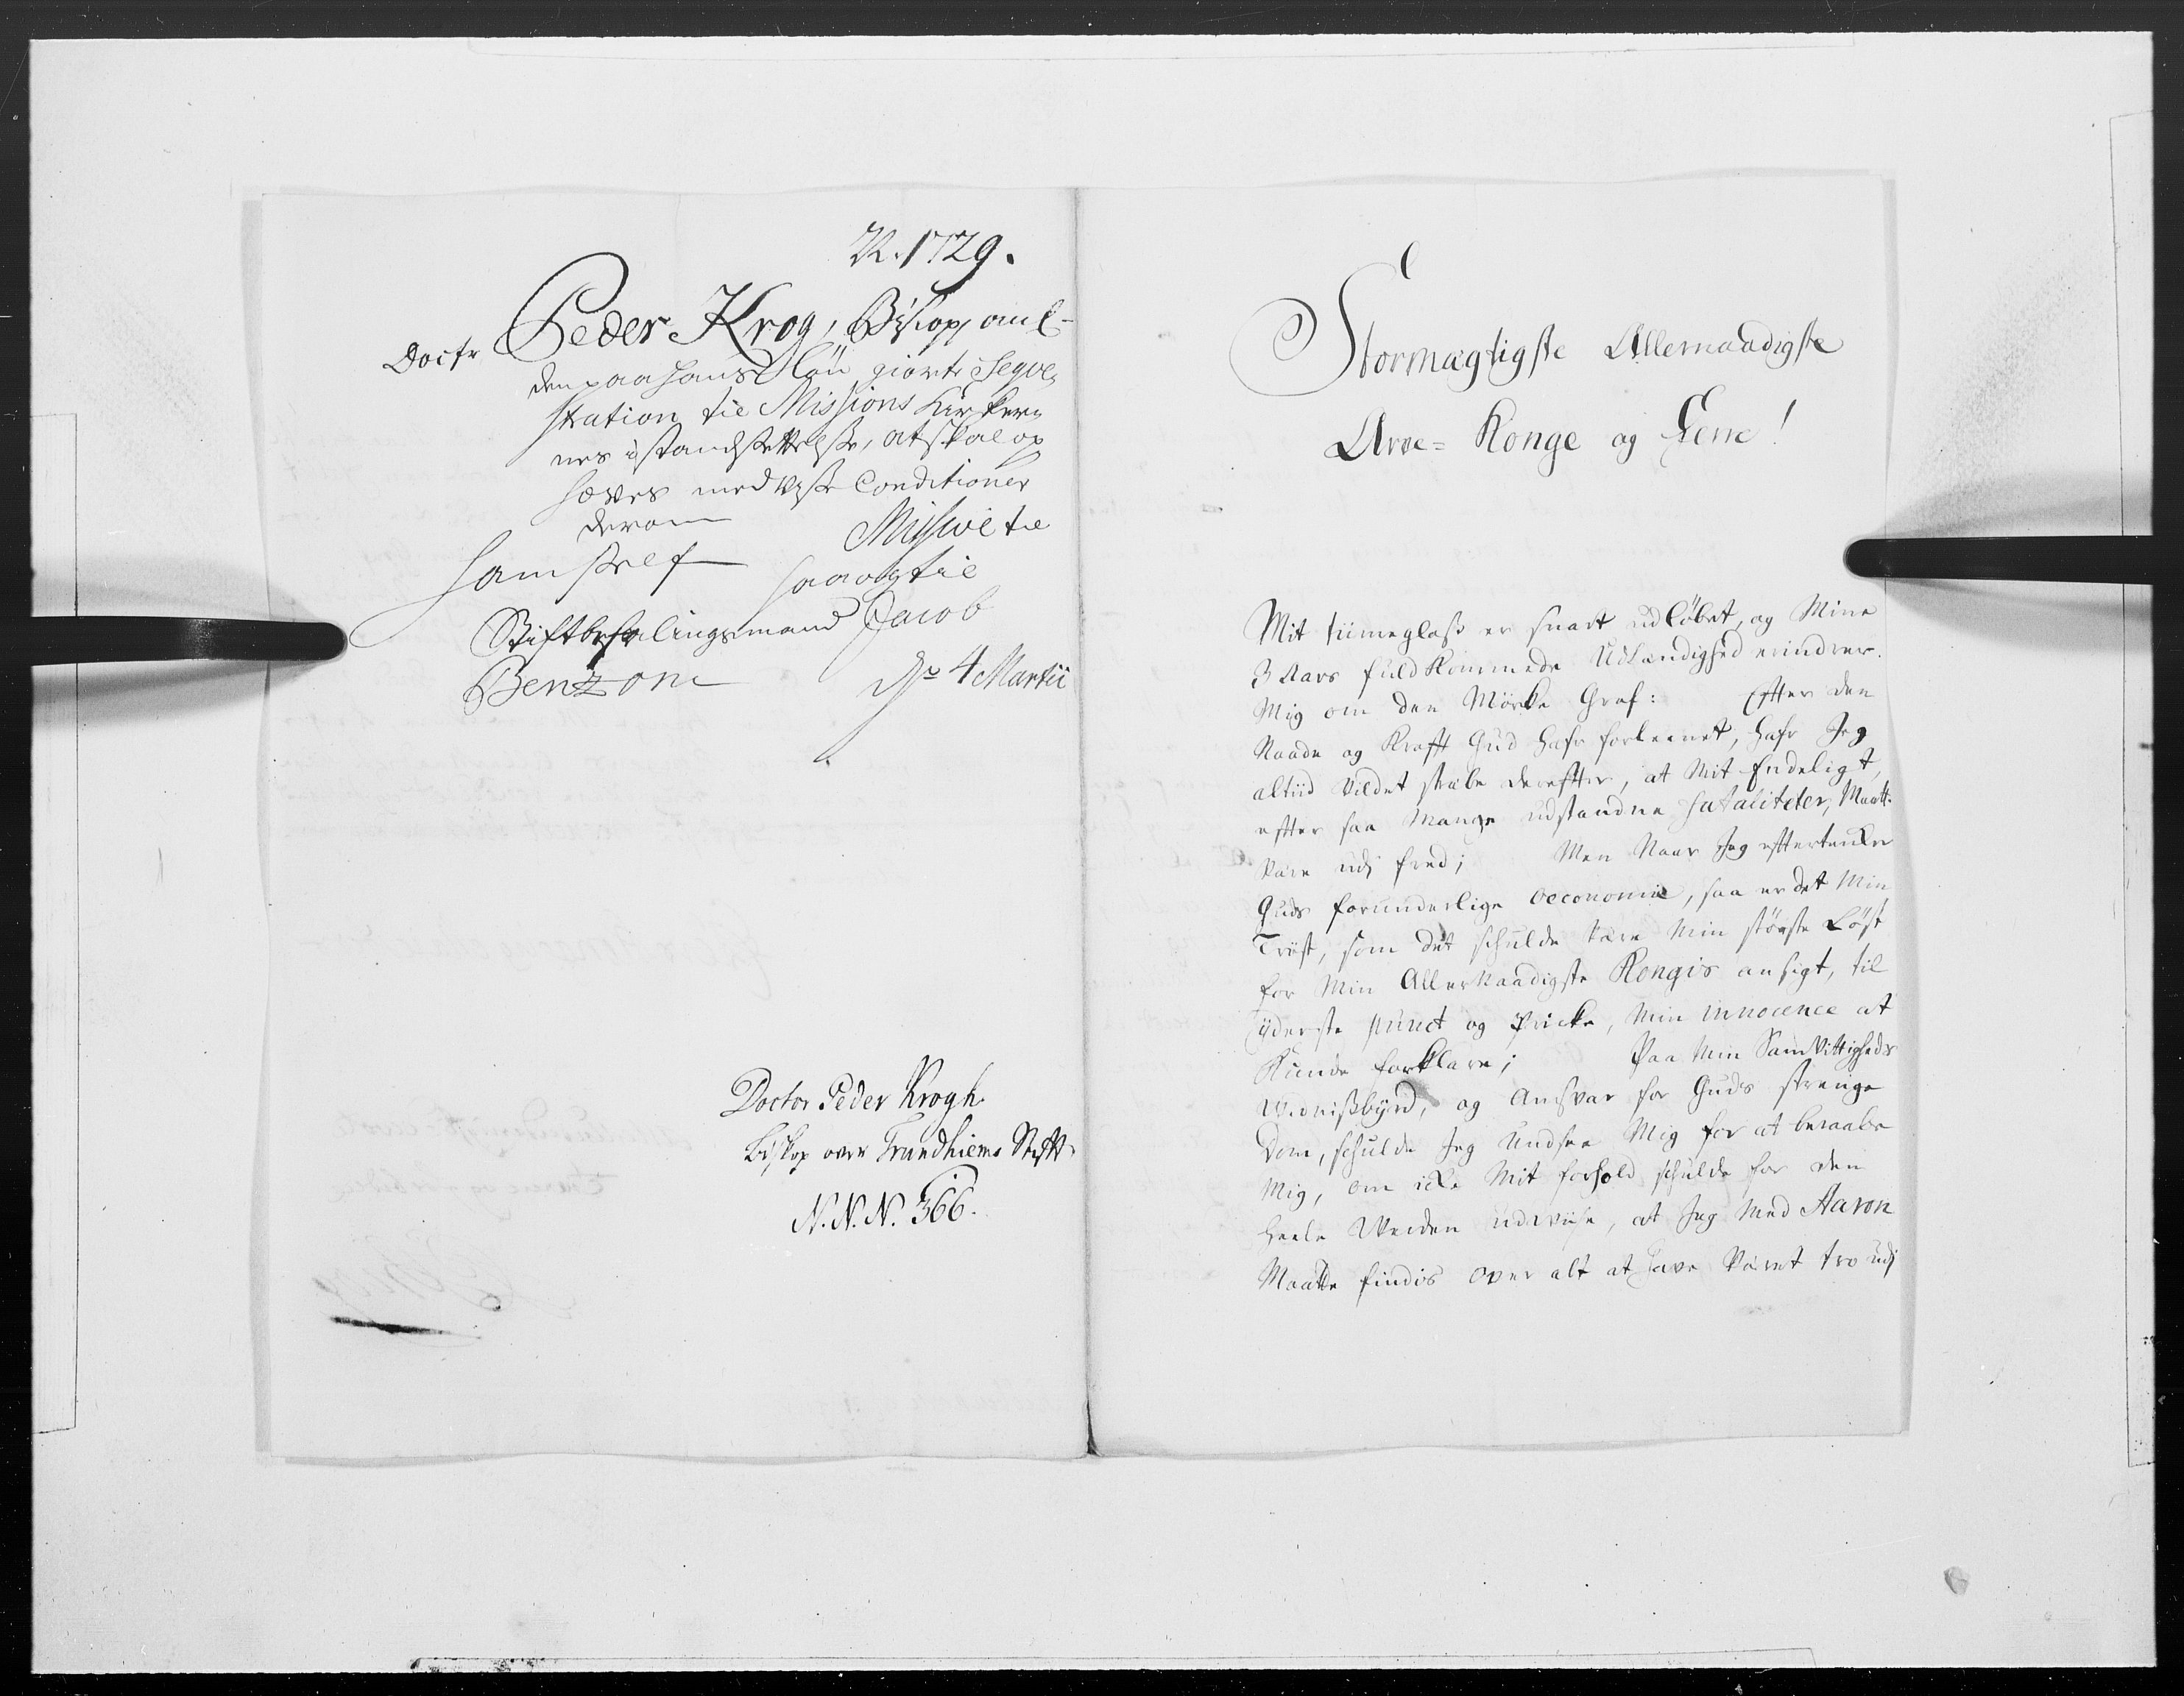 N. 1729.
Doctr Peder Krog, Biskop, anl-
den paa hans Løn giorte Seqve-
stration til Missions Kirkers
nes istandsættelse, at skal op
hæves med visse Conditioner
derom
Missive til
ham self
saa og til
Stiftbefalingsmand Jacob
Benzon
Dn 4 Martii
Doctor Peder Krogh.
Biskop over Trundhiems Stift.
N. N. N. 366.
Stormægtigste Allernaadigste
Arve-Konge og Herre!
Mit tiimeglass er snart udløbet, og Mine
3 Aars fuldkommede Udlændighed erindrer
Mig om den Mørke Graf: Efter den
Naade og Krafft Gud hafr forleenet, hafr Jeg
altiid vildet stræbe derefter, at Mit Endeligt,
efter saa Mange udstandne fataliteter, Maatte
være udj fred; Men Naar Jeg eftertencker
Guds forunderlige oeconomie, saa er det Min
Trøst, som det schulde være Min største Løst
for Min Allernaadigste Kongis ansigt, til
yderste punct og Pricke, Min innocence at
Kunde forklare; Paa Min Samvittigheds
Widnissbyrd, og Ansvar for Guds strenge
Dom, schulde Jeg Undsee Mig for at beraabe
Mig, om icke Mit forhold schulde for den
heele Werden udviise, at Jeg Med Aaron
Maatte findis over alt at have været tro udj